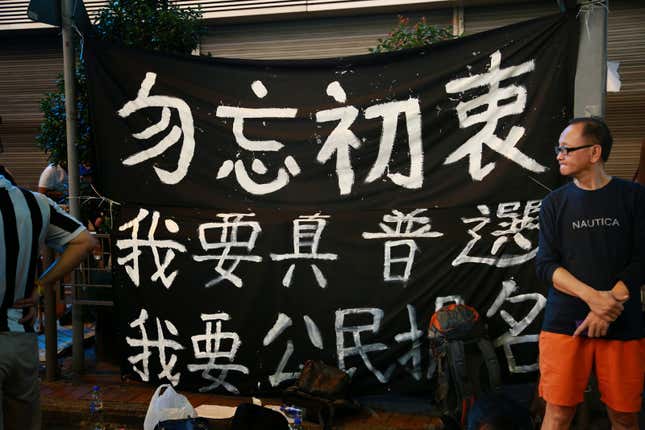 勿忘初衷
我要真普選
我要公民提名
NAUTICA